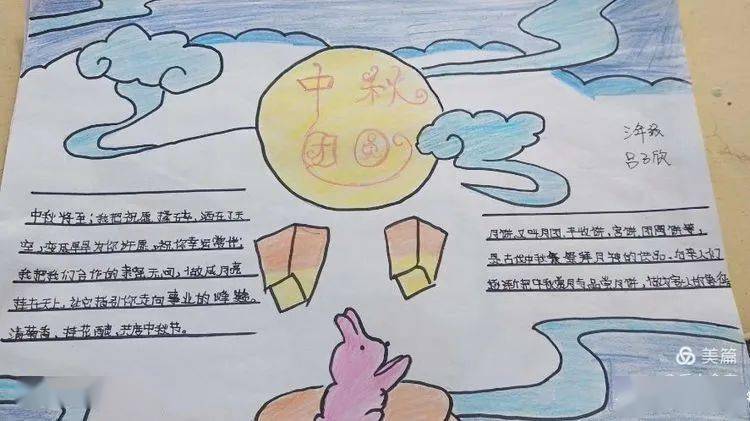 中秋
团圆
三年级
吕子欣
中秋将至;我把祝愿揉碎,洒在了天
空,变成星星为你许愿,祝你幸福满世;
我把我们合作的亲密无间,做成月亮
挂在天上,让它指引你走向事业的辉煌。
清菊香,桂花酿,共度中秋节。
月饼,又叫月团、丰收饼、宫饼、团圆饼等,
是古代中秋祭拜月神的供品
把中秋赏月与品尝月饼
美篇